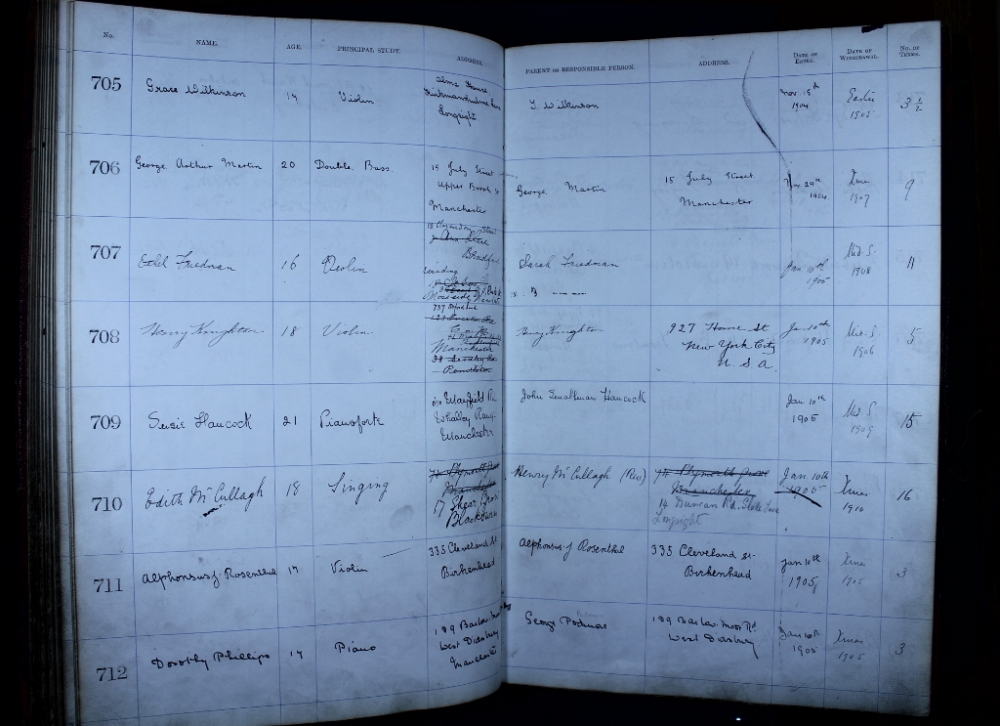 No. NAME. AGE. PRINCIPAL STUDY. ADDRESS. PARENT OR RESPONSIBLE PERSON. ADDRESS. DATE OF ENTRY. DATE OF WITHDRAWAL. NO. OF TERMS.
705 Grace Wilkinson 17 Violin
Longsight
Wilkinson
Nov. 15th
1904
Easter
1905
3 1/2
706 George Arthur Martin 20 Double Bass
15 July Street
Upper Brook St
Manchester
George Martin
15 July Street
Manchester
Nov. 29th
1904
Xmas
1907
9
707 Ethel Friedman 16 Violin
Sarah Friedman
Jan 10th
1905
Mid. S.
1908
11
708 Henry Knighton 18 Violin
Manchester
Pendleton
Knighton
927 Home St
New York City
U. S. A.
Jan 10th
1905
Mid. S.
1906
5
709 Susie Hancock 21 Pianoforte
Mayfield Rd.
Whalley Range
Manchester
John Smallman Hancock
Jan 10th
1905
Mid S.
1909
15
710 Edith McCullagh 18 Singing
74 Plymouth Grove
Manchester
17 Shear Brow
Blackburn
Henry McCullagh (Rev)
74 Plymouth Grove
Manchester
14 Duncan Rd. Slade Lane
Longsight
Jan 10th
1905
Xmas
1910
16
711 Alphonsus J Rosenthal 17 Violin
335 Cleveland St
Birkenhead
Alphonsus J Rosenthal
335 Cleveland St
Birkenhead
Jan 10th
1905
Xmas
1905
3
712 Dorothy Phillips 17 Piano
189 Barlow Moor
West Didsbury
Manchester
George Podmore
189 Barlow Moor Rd
West Didsbury
Jan 10th
1905
Xmas
1905
3